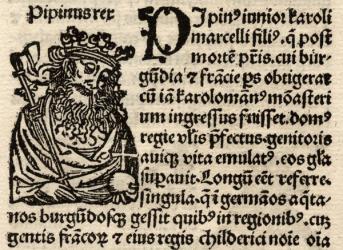 Pipinus rex
Pipinꝰ iunior karoli
marcelli filiꝰ, q̃ post
mortẽ pr̃is, cui bur-
gũdia ⁊ frãcie ꝑs obtigerat
cũ iã karolomanꝰ mõasteri
um ingressus fuisset. domꝰ
regie vl̃is p̃fectus, genitoris
auiqꝫ vita emulatꝰ, eos gl̃a
suꝑauit. Longũ eẽt referre
singula. q̃ i germãos aq̃ta-
nos burgũdosqꝫ gessit quibꝰ in regionibꝰ. cuʒ
gentis frãcoꝝ ⁊ eius regis childerici nõĩe oĩa